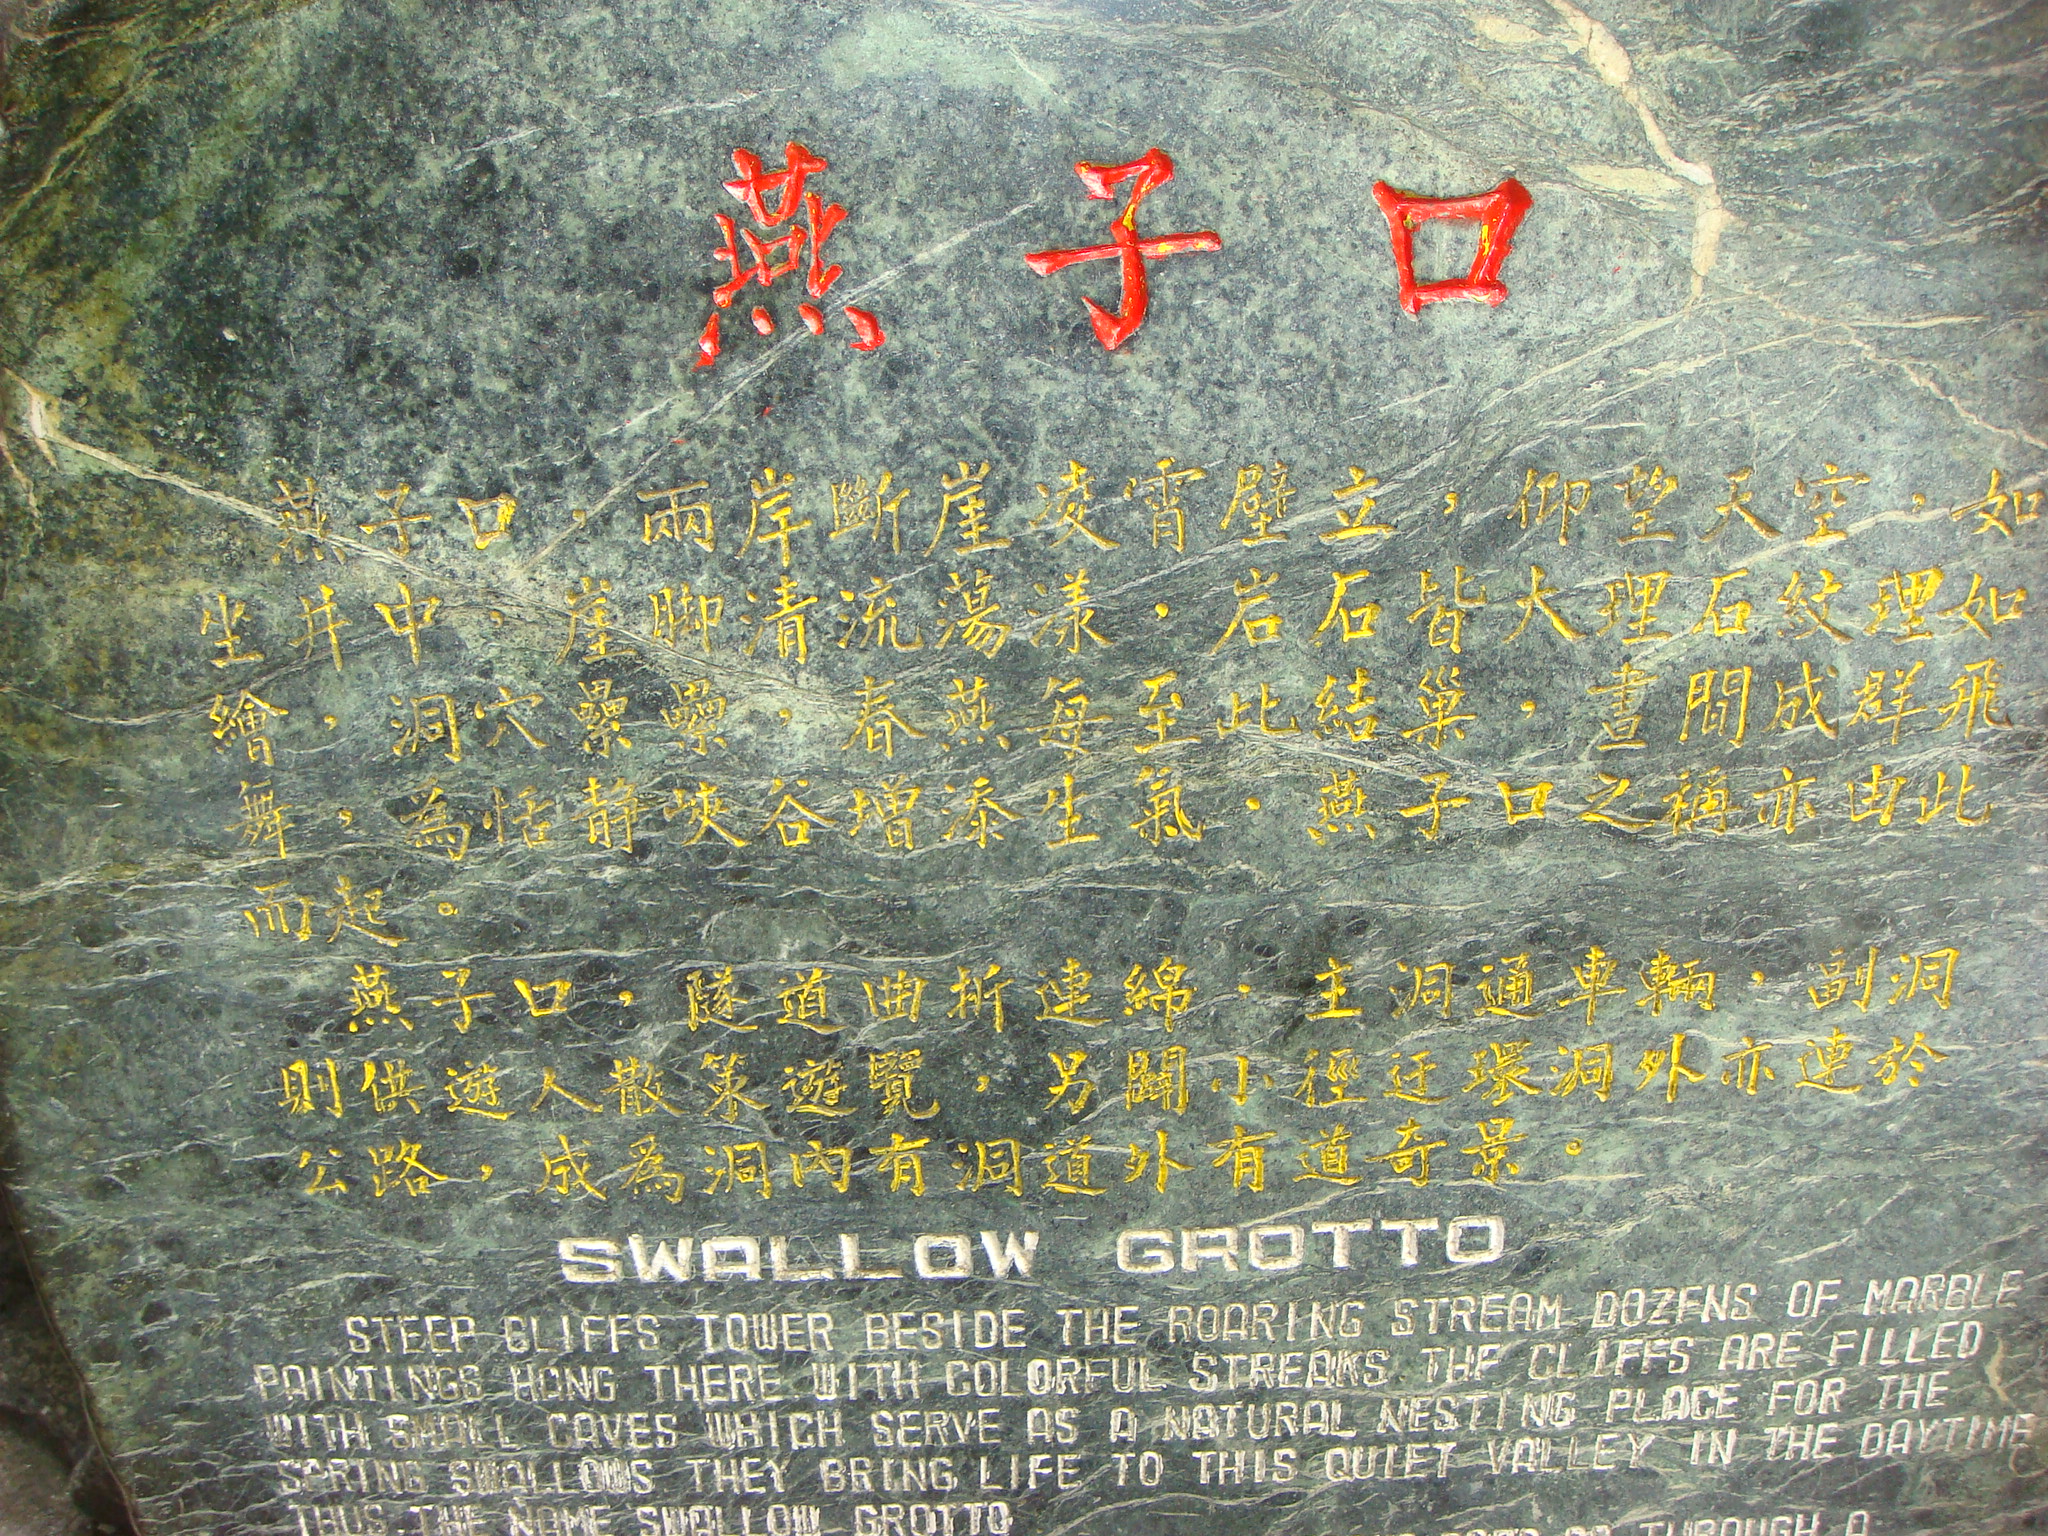 燕子口
燕子口，兩岸斷崖凌霄壁立，仰望天空，如
坐井中，崖脚清流蕩漾，岩石皆大理石紋理如
繪，洞穴纍纍，春燕每至此結巢，晝間成群飛
舞，為恬靜峽谷增添生氣，燕子口之稱亦由此
而起。
燕子口，隧道曲折連綿，主洞通車輛，副洞
則供遊人散策遊覽，另闢小徑迂環洞外亦連於
公路，成為洞內有洞道外有道奇景。
SWALLOW GROTTO
STEEP CLIFFS TOWER BESIDE THE ROARING STREAM DOZENS OF MARBLE
PAINTINGS HANG THERE WITH COLORFUL STREAKS THE CLIFFS ARE FILLED
WITH SMALL CAVES WHICH SERVE AS A NATURAL NESTING PLACE FOR THE
SPRING SWALLOWS THEY BRING LIFE TO THIS QUIET VALLEY IN THE DAYTIME
THUS THE NAME SWALLOW GROTTO
THROUGH A